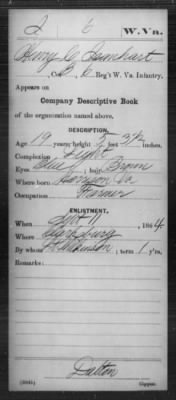 2 6 W. Va.
Henry C
Co. , 6 Reg't W. Va. Infantry.
Appears on
Company Descriptive Book
of the organization named above.
DESCRIPTION.
Age 19 years; height 5 feet inches.
Complexion Light
Eyes Blue; hair Brown
Where born Harrison Va
Occupation Farmer
ENLISTMENT.
When Sept 11, 1864
Where Clarksburg
By whom Wilkinson; term 1 y'rs.
Remarks:
Dalton
Copyist.